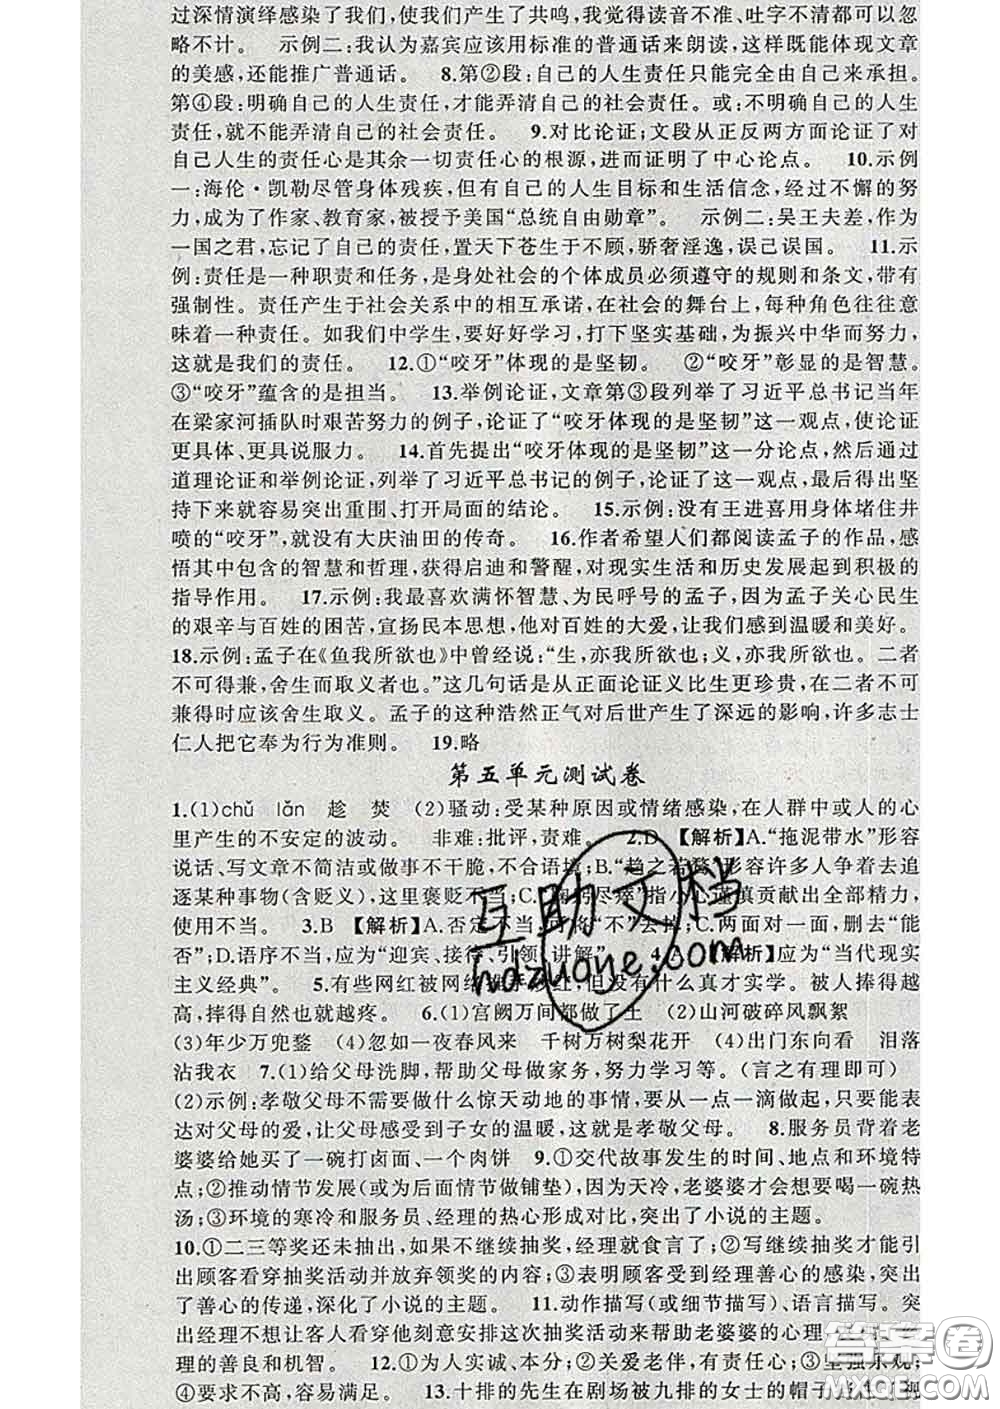 过深情演绎感染了我们,使我们产生了共鸣,我觉得读音不准、吐字不清都可以忽
略不计。 示例二:我认为嘉宾应该用标准的普通话来朗读,这样既能体现文章
的美感,还能推广普通话。 8.第②段:自己的人生责任只能完全由自己来承担。
第④段:明确自己的人生责任,才能弄清自己的社会责任。或:不明确自己的人生
责任,就不能弄清自己的社会责任。 9.对比论证;文段从正反两方面论证了对
自己人生的责任心是其余一切责任心的根源,进而证明了中心论点。 10.示例
一:海伦·凯勒尽管身体残疾,但有自己的人生目标和生活信念,经过不懈的努
力,成为了作家、教育家,被授予美国“总统自由勋章”。 示例二:吴王夫差,作为
一国之君,忘记了自己的责任,置天下苍生于不顾,骄奢淫逸,误己误国。 11.示
例:责任是一种职责和任务,是身处社会的个体成员必须遵守的规则和条文,带有
强制性。责任产生于社会关系中的相互承诺,在社会的舞台上,每种角色往往意
味着一种责任。如我们中学生,要好好学习,打下坚实基础,为振兴中华而努力,
这就是我们的责任。 12.①“咬牙”体现的是坚韧。 ②“咬牙”彰显的是智慧。
③“咬牙”蕴含的是担当。 13.举例论证,文章第③段列举了习近平总书记当年
在梁家河插队时艰苦努力的例子,论证了“咬牙体现的是坚韧”这一观点,使论证
更具体、更具说服力。 14.首先提出“咬牙体现的是坚韧”这一分论点,然后通过
道理论证和举例论证,列举了习近平总书记的例子,论证了这一观点,最后得出坚
持下来就容易突出重围、打开局面的结论。 15.示例:没有王进喜用身体堵住井
喷的“咬牙”,就没有大庆油田的传奇。 16.作者希望人们都阅读孟子的作品,感
悟其中包含的智慧和哲理,获得启迪和警醒,对现实生活和历史发展起到积极的
指导作用。 17.示例:我最喜欢满怀智慧、为民呼号的孟子,因为孟子关心民生
的艰辛与百姓的困苦,宣扬民本思想,他对百姓的大爱,让我们感到温暖和美好。
18.示例:孟子在《鱼我所欲也》中曾经说:“生,亦我所欲也;义,亦我所欲也。二者
不可得兼,舍生而取义者也。”这几句话是从正面论证义比生更珍贵,在二者不可
兼得时应该舍生取义。孟子的这种浩然正气对后世产生了深远的影响,许多志士
仁人把它奉为行为准则。 19.略
第五单元测试卷
1.(1)chǔ lǎn 趁 焚 (2)骚动:受某种原因或情绪感染,在人群中或人的心
里产生的不安定的波动。 非难:批评,责难。 2.D 【解析】A.“拖泥带水”形容
说话、写文章不简洁或做事不干脆,不合语境;B.“趋之若鹜”形容许多人争着去追
逐某种事物(含贬义),这里褒贬不当;C.“鞠躬尽瘁”指小心谨慎贡献出全部精力,
使用不当。 3.B 【解析】A.否定不当,可将“不”去掉;C.两面对一面,删去“能
否”;D.语序不当,应为“迎宾、接待、引领、讲解”。 4.A 【解析】应为“当代现实
主义经典”。 5.有些网红被网络推手炒红,但没有什么真才实学。被人捧得越
高,摔得自然也就越疼。 6.(1)宫阙万间都做了土 (2)山河破碎风飘絮
(3)年少万兜鍪 (4)忽如一夜春风来 千树万树梨花开 (4)出门东向看 泪落
沾我衣 7.(1)给父母洗脚,帮助父母做家务,努力学习等。(言之有理即可)
(2)示例:孝敬父母不需要做什么惊天动地的事情,要从一点一滴做起,只要能表
达对父母的爱,让父母感受到子女的温暖,这就是孝敬父母。 8.服务员背着老
婆婆给她买了一碗打卤面、一个肉饼 9.①交代故事发生的时间、地点和环境特
点;②推动情节发展(或为后面情节做铺垫),因为天冷,老婆婆才会想要喝一碗热
汤;③环境的寒冷和服务员、经理的热心形成对比,突出了小说的主题。
10.①二三等奖还未抽出,如果不继续抽奖,经理就食言了;②写继续抽奖才能引
出顾客看穿抽奖活动并放弃领奖的内容;③表明顾客受到经理善心的感染,突出
了善心的传递,深化了小说的主题。 11.动作描写(或细节描写)、语言描写。突
出经理不想让客人看穿他刻意安排这次抽奖活动来帮助老婆婆的心理,
理的善良和机智。 12.①为人实诚、本分;②关爱老伴,有责任心;③坚强乐观;
④要求不高,容易满足。 13.十排的先生在剧场被九排的女士的帽子
互助文档
hdzuoye.com
答案圈
MXQE.COM